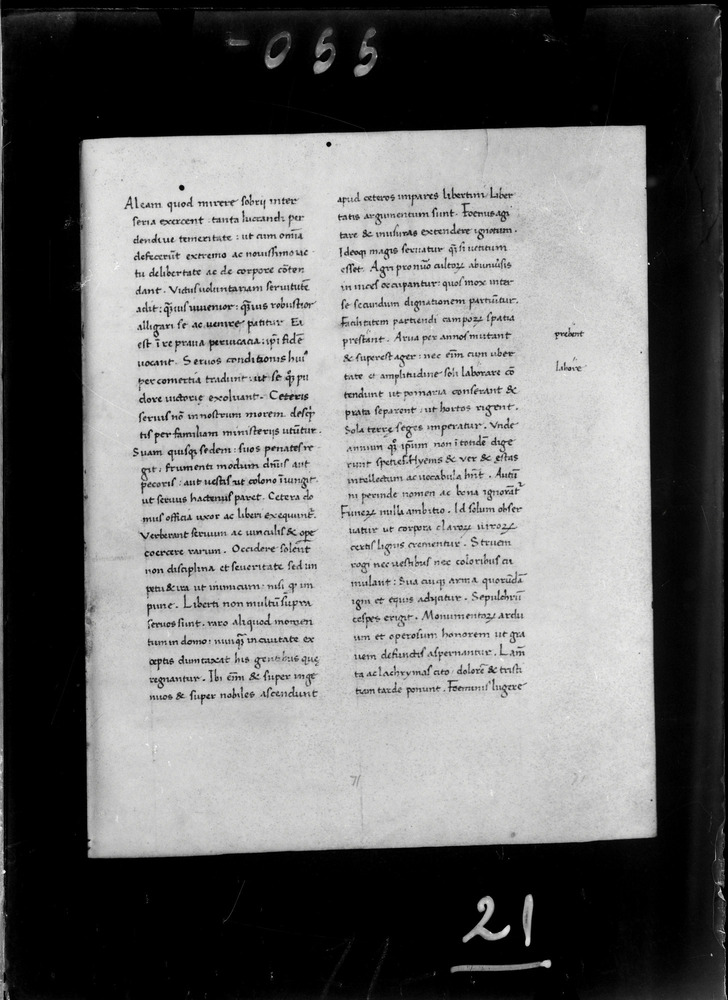 -055
Aleam quod mirere sobrij inter
seria exercent: tanta lucrandi per
dendiue temeritate: ut cum om̄ia
defecerūt extremo ac nouissimo iac
tu de libertate ac de corpore cōten
dant. Victus uoluntariam seruitutē
adit: q̄uis iuuenior: q̄uis robustior
alligari se ac uenire patitur. Ea
est ī re praua peruicacia: ipi fidē
uocant. Seruos conditionis huiꝰ
per comertia tradunt: ut se qꝫ pu
dore uictorię exoluant. Ceteris
seruis nō in nostrum morem descp̄
tis per familiam ministerijs utūtur.
Suam quisqꝫ sedem: suos penates re
git. frumenti modum dn̄us aut
pecoris: aut uestis ut colono īiungit.
ut seruus hactenus paret. Cetera do
mus officia uxor ac liberi exequunt᷑.
Verberant seruum ac uinculis & ope
coercere rarum. Occidere solent
non disciplina et seueritate sed im
petu & ira ut inimicum: nisi ꝙ im
pune. Liberti non multū supra
seruos sunt. raro aliquod momen
tum in domo: nunq̄ in ciuitate ex
ceptis dumtaxat his gentibus quę
regnantur. Ibi em̄ & super inge
nuos & super nobiles ascendunt
apud ceteros impares libertini Liber
tatis argumentum sunt. Foenus agi
tare & in usuras extendere ignotum.
Ideoqꝫ magis seruatur q̄ si uetitum
esset. Agri pro nūo cultoꝝ ab uniūsis
in uices occupantur: quos mox inter
se secundum dignationem partiūtur.
Facilitatem partiendi campoꝝ spatia
prestant. Arua per annos mutant
& superest ager: nec em̄ cum uber
tate et amplitudine soli laborare cō
tendunt ut pomaria conserant &
prata separent: ut hortos rigent.
Sola terrę seges imperatur. Vnde
annum qꝫ ipum non ī totidē dige
runt species. Hyems & uer & ęstas
intellectum ac uocabula hn̄t. Autū
ni perinde nomen ac bona ignorant᷑
Funeꝝ nulla ambitio. Id solum obser
uatur ut corpora claroꝝ uiroꝝ
certis lignis crementur. Struem
rogi nec uestibus nec odoribus cu
mulant: Sua cuiqꝫ arma quorūdā
igni et equus adijcitur. Sepulchrū
cespes erigit. Monumentoꝝ ardu
um et operosum honorem ut gra
uem defunctis aspernantur. Lam̄
ta ac lachrymas cito: dolorē & tristi
tiam tarde ponunt. Foeminis lugere
prebent
labore
71
21